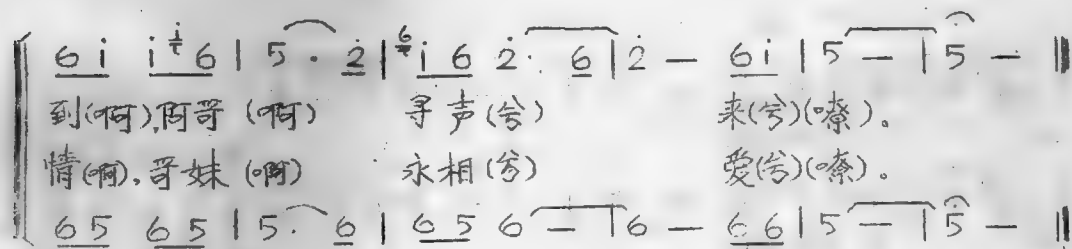 6 i i i 6 | 5 · 2 | 6 i 6 2 · 6 | 2 — 6 i | 5 — | 5 — ‖
到(啊),阿哥(啊) 寻声(兮) 来(兮)(嘹)。
情(啊),哥妹(啊) 永相(兮) 爱(兮)(嘹)。
6 5 6 5 | 5 · 6 | 6 5 6 — | 6 — 6 6 | 5 — | 5 — ‖